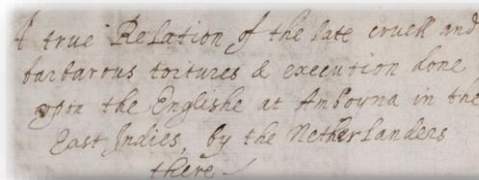 A true Relation of the late cruell and
barbarous tortures & execution done
upon the Englishe at Amboyna in the
East Indies, by the Netherlanders
there